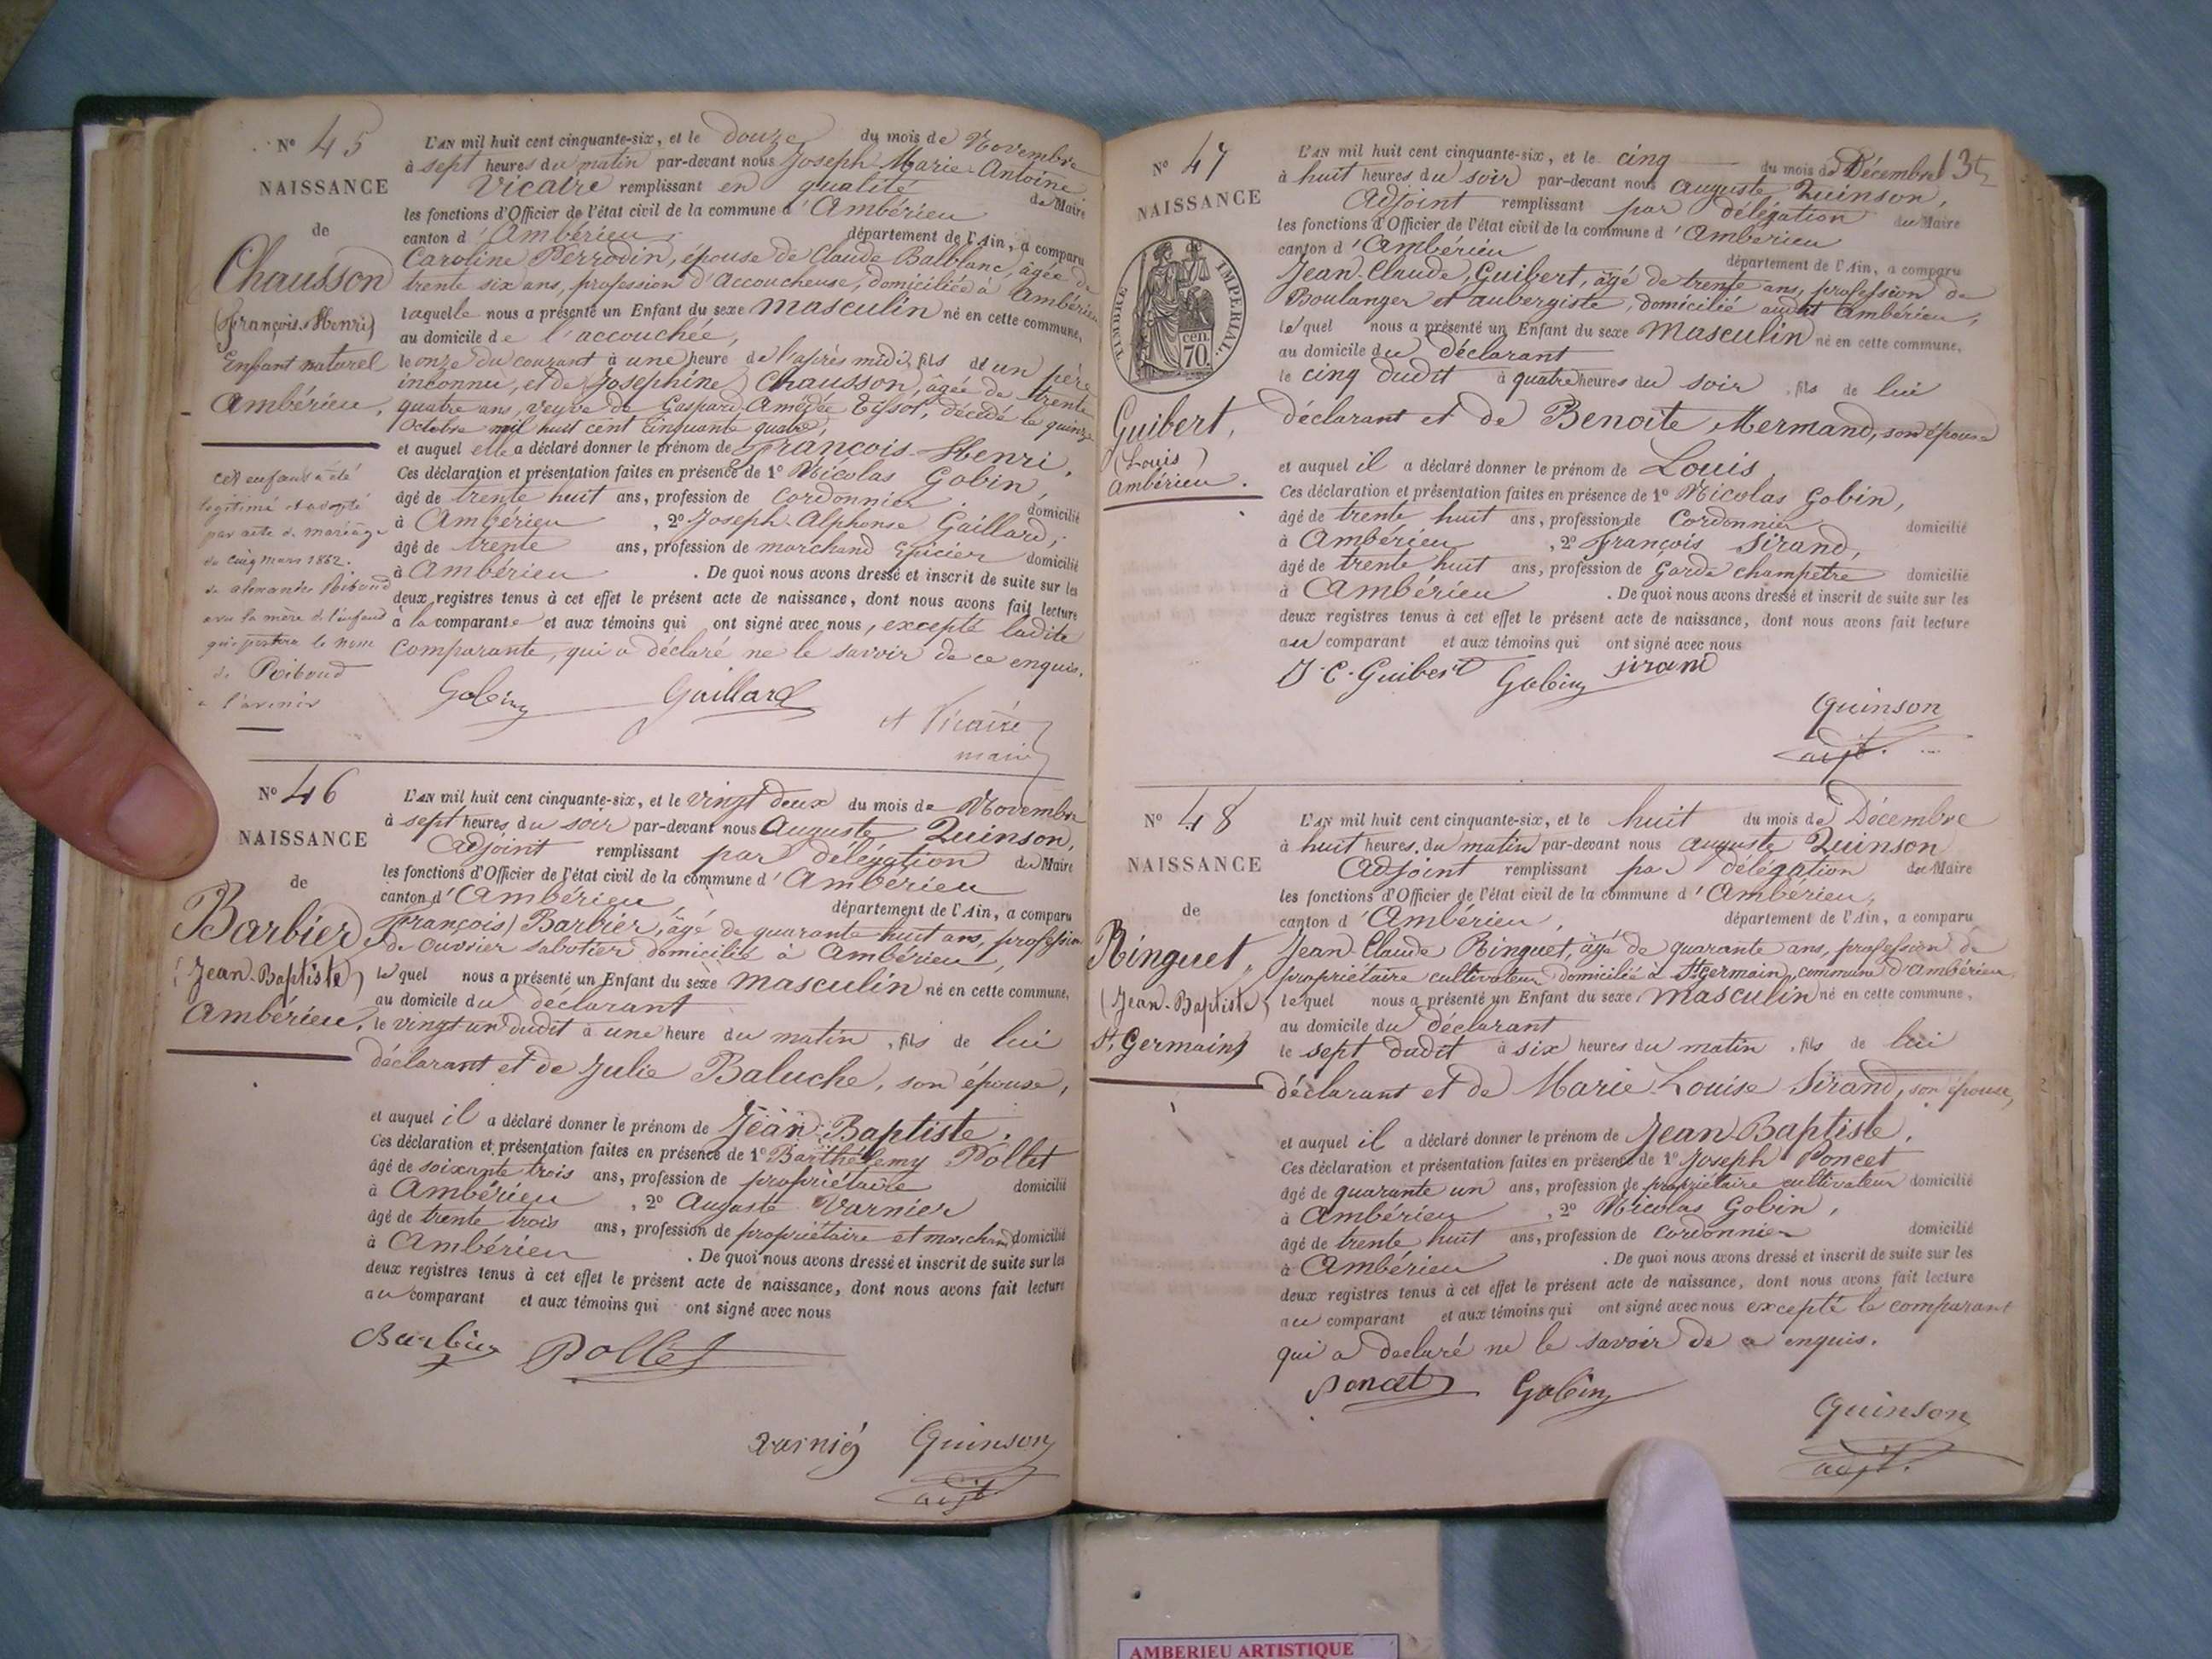 N° 45
NAISSANCE
de
Chausson
(François-Henri)
Enfant naturel
Ambérieu,
cet enfant a été
légitimé et adopté
par acte de mariage
du cinq mars 1862.
de alexandre Riboud
avec la mère de l'enfant
qui portera le nom
de Riboud
à l'avenir
L'AN mil huit cent cinquante-six, et le douze du mois de Novembre
à sept heures du matin par-devant nous Joseph-Marie-Antoine
Vicaire remplissant en qualité de Maire
les fonctions d'Officier de l'état civil de la commune d'Ambérieu
canton d'Ambérieu, département de l'Ain, a comparu
Caroline Perrodin, épouse de Claude Balblanc, âgée de
trente six ans, profession d'Accoucheuse, domiciliée à Ambérieu
laquelle nous a présenté un Enfant du sexe masculin né en cette commune,
au domicile de l'accouchée,
le onze du courant à une heure de l'après midi, fils d'un père
inconnu, et de Josephine Chausson, âgée de trente
quatre ans, veuve de Gaspard Amédée Tissot, décédé le quinze
Octobre mil huit cent cinquante quatre,
et auquel elle a déclaré donner le prénom de François-Henri.
Ces déclaration et présentation faites en présence de 1° Nicolas Gobin,
âgé de trente huit ans, profession de Cordonnier domicilié
à Ambérieu, 2° Joseph-Alphonse Gaillard,
âgé de trente ans, profession de marchand Epicier domicilié
à Ambérieu. De quoi nous avons dressé et inscrit de suite sur les
deux registres tenus à cet effet le présent acte de naissance, dont nous avons fait lecture
à la comparante et aux témoins qui ont signé avec nous, excepté ladite
Comparante, qui a déclaré ne le savoir de ce enquis.
Gobin Gaillard
A Vicaire
maire
N° 46
NAISSANCE
de
Barbier
(Jean-Baptiste)
Ambérieu.
L'AN mil huit cent cinquante-six, et le vingt deux du mois de Novembre
à sept heures du soir par-devant nous Auguste Quinson,
Adjoint remplissant par délégation du Maire
les fonctions d'Officier de l'état civil de la commune d'Ambérieu
canton d'Ambérieu, département de l'Ain, a comparu
François Barbier, âgé de quarante huit ans, profession
de ouvrier sabotier domicilié à Ambérieu,
lequel nous a présenté un Enfant du sexe masculin né en cette commune,
au domicile du déclarant
le vingt un dudit à une heure du matin, fils de lui
déclarant et de Julie Baluche, son épouse,
et auquel il a déclaré donner le prénom de Jean-Baptiste.
Ces déclaration et présentation faites en présence de 1° Barthélemy Pollet
âgé de soixante trois ans, profession de propriétaire domicilié
à Ambérieu, 2° Auguste Varnier
âgé de trente trois ans, profession de propriétaire et marchand domicilié
à Ambérieu. De quoi nous avons dressé et inscrit de suite sur les
deux registres tenus à cet effet le présent acte de naissance, dont nous avons fait lecture
au comparant et aux témoins qui ont signé avec nous
Barbier Pollet
Varnié Quinson
adjt.
135
N° 47
NAISSANCE
TIMBRE IMPERIAL
70 cen.
de
Guibert,
(Louis)
Ambérieu.
L'AN mil huit cent cinquante-six, et le cinq du mois de Décembre
à huit heures du soir par-devant nous Auguste Quinson,
Adjoint remplissant par délégation du Maire
les fonctions d'Officier de l'état civil de la commune d'Ambérieu
canton d'Ambérieu département de l'Ain, a comparu
Jean-Claude Guibert, âgé de trente ans, profession de
Boulanger et aubergiste, domicilié audit Ambérieu,
lequel nous a présenté un Enfant du sexe Masculin né en cette commune,
au domicile du déclarant
le cinq dudit à quatre heures du soir, fils de lui
déclarant et de Benoite Mermand, son épouse
et auquel il a déclaré donner le prénom de Louis
Ces déclaration et présentation faites en présence de 1° Nicolas Gobin,
âgé de trente huit ans, profession de Cordonnier domicilié
à Ambérieu, 2° François Sirand,
âgé de trente huit ans, profession de Garde champetre domicilié
à Ambérieu. De quoi nous avons dressé et inscrit de suite sur les
deux registres tenus à cet effet le présent acte de naissance, dont nous avons fait lecture
au comparant et aux témoins qui ont signé avec nous
J-C. Guibert Gobin sirand
Quinson
adjt.
N° 48
NAISSANCE
de
Ringuet,
(Jean-Baptiste)
St. Germain
L'AN mil huit cent cinquante-six, et le huit du mois de Décembre
à huit heures du matin par-devant nous Auguste Quinson
Adjoint remplissant par délégation du Maire
les fonctions d'Officier de l'état civil de la commune d'Ambérieu,
canton d'Ambérieu, département de l'Ain, a comparu
Jean-Claude Ringuet, âgé de quarante ans, profession de
propriétaire cultivateur domicilié à St Germain, commune d'Ambérieu
lequel nous a présenté un Enfant du sexe masculin né en cette commune,
au domicile du déclarant
le sept dudit à six heures du matin, fils de lui
déclarant et de Marie-Louise Sirand, son épouse,
et auquel il a déclaré donner le prénom de Jean-Baptiste.
Ces déclaration et présentation faites en présence de 1° Joseph Poncet
âgé de quarante un ans, profession de propriétaire cultivateur domicilié
à Ambérieu, 2° Nicolas Gobin,
âgé de trente huit ans, profession de Cordonnier domicilié
à Ambérieu. De quoi nous avons dressé et inscrit de suite sur les
deux registres tenus à cet effet le présent acte de naissance, dont nous avons fait lecture
au comparant et aux témoins qui ont signé avec nous excepté le comparant
qui a declaré ne le savoir de ce enquis.
Poncet Gobin
Quinson
adjt.
AMBERIEU ARTISTIQUE